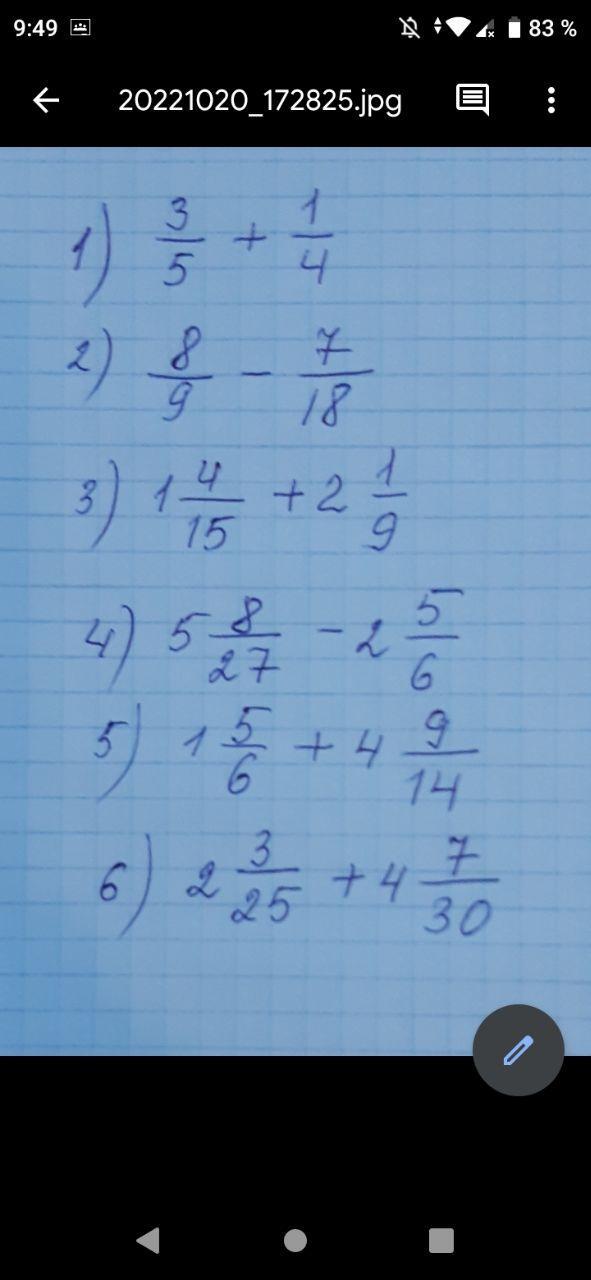 9:49 83 %
20221020_172825.jpg
1) 3/5 + 1/4
2) 8/9 - 7/18
3) 1 4/15 + 2 1/9
4) 5 8/27 - 2 5/6
5) 1 5/6 + 4 9/14
6) 2 3/25 + 4 7/30